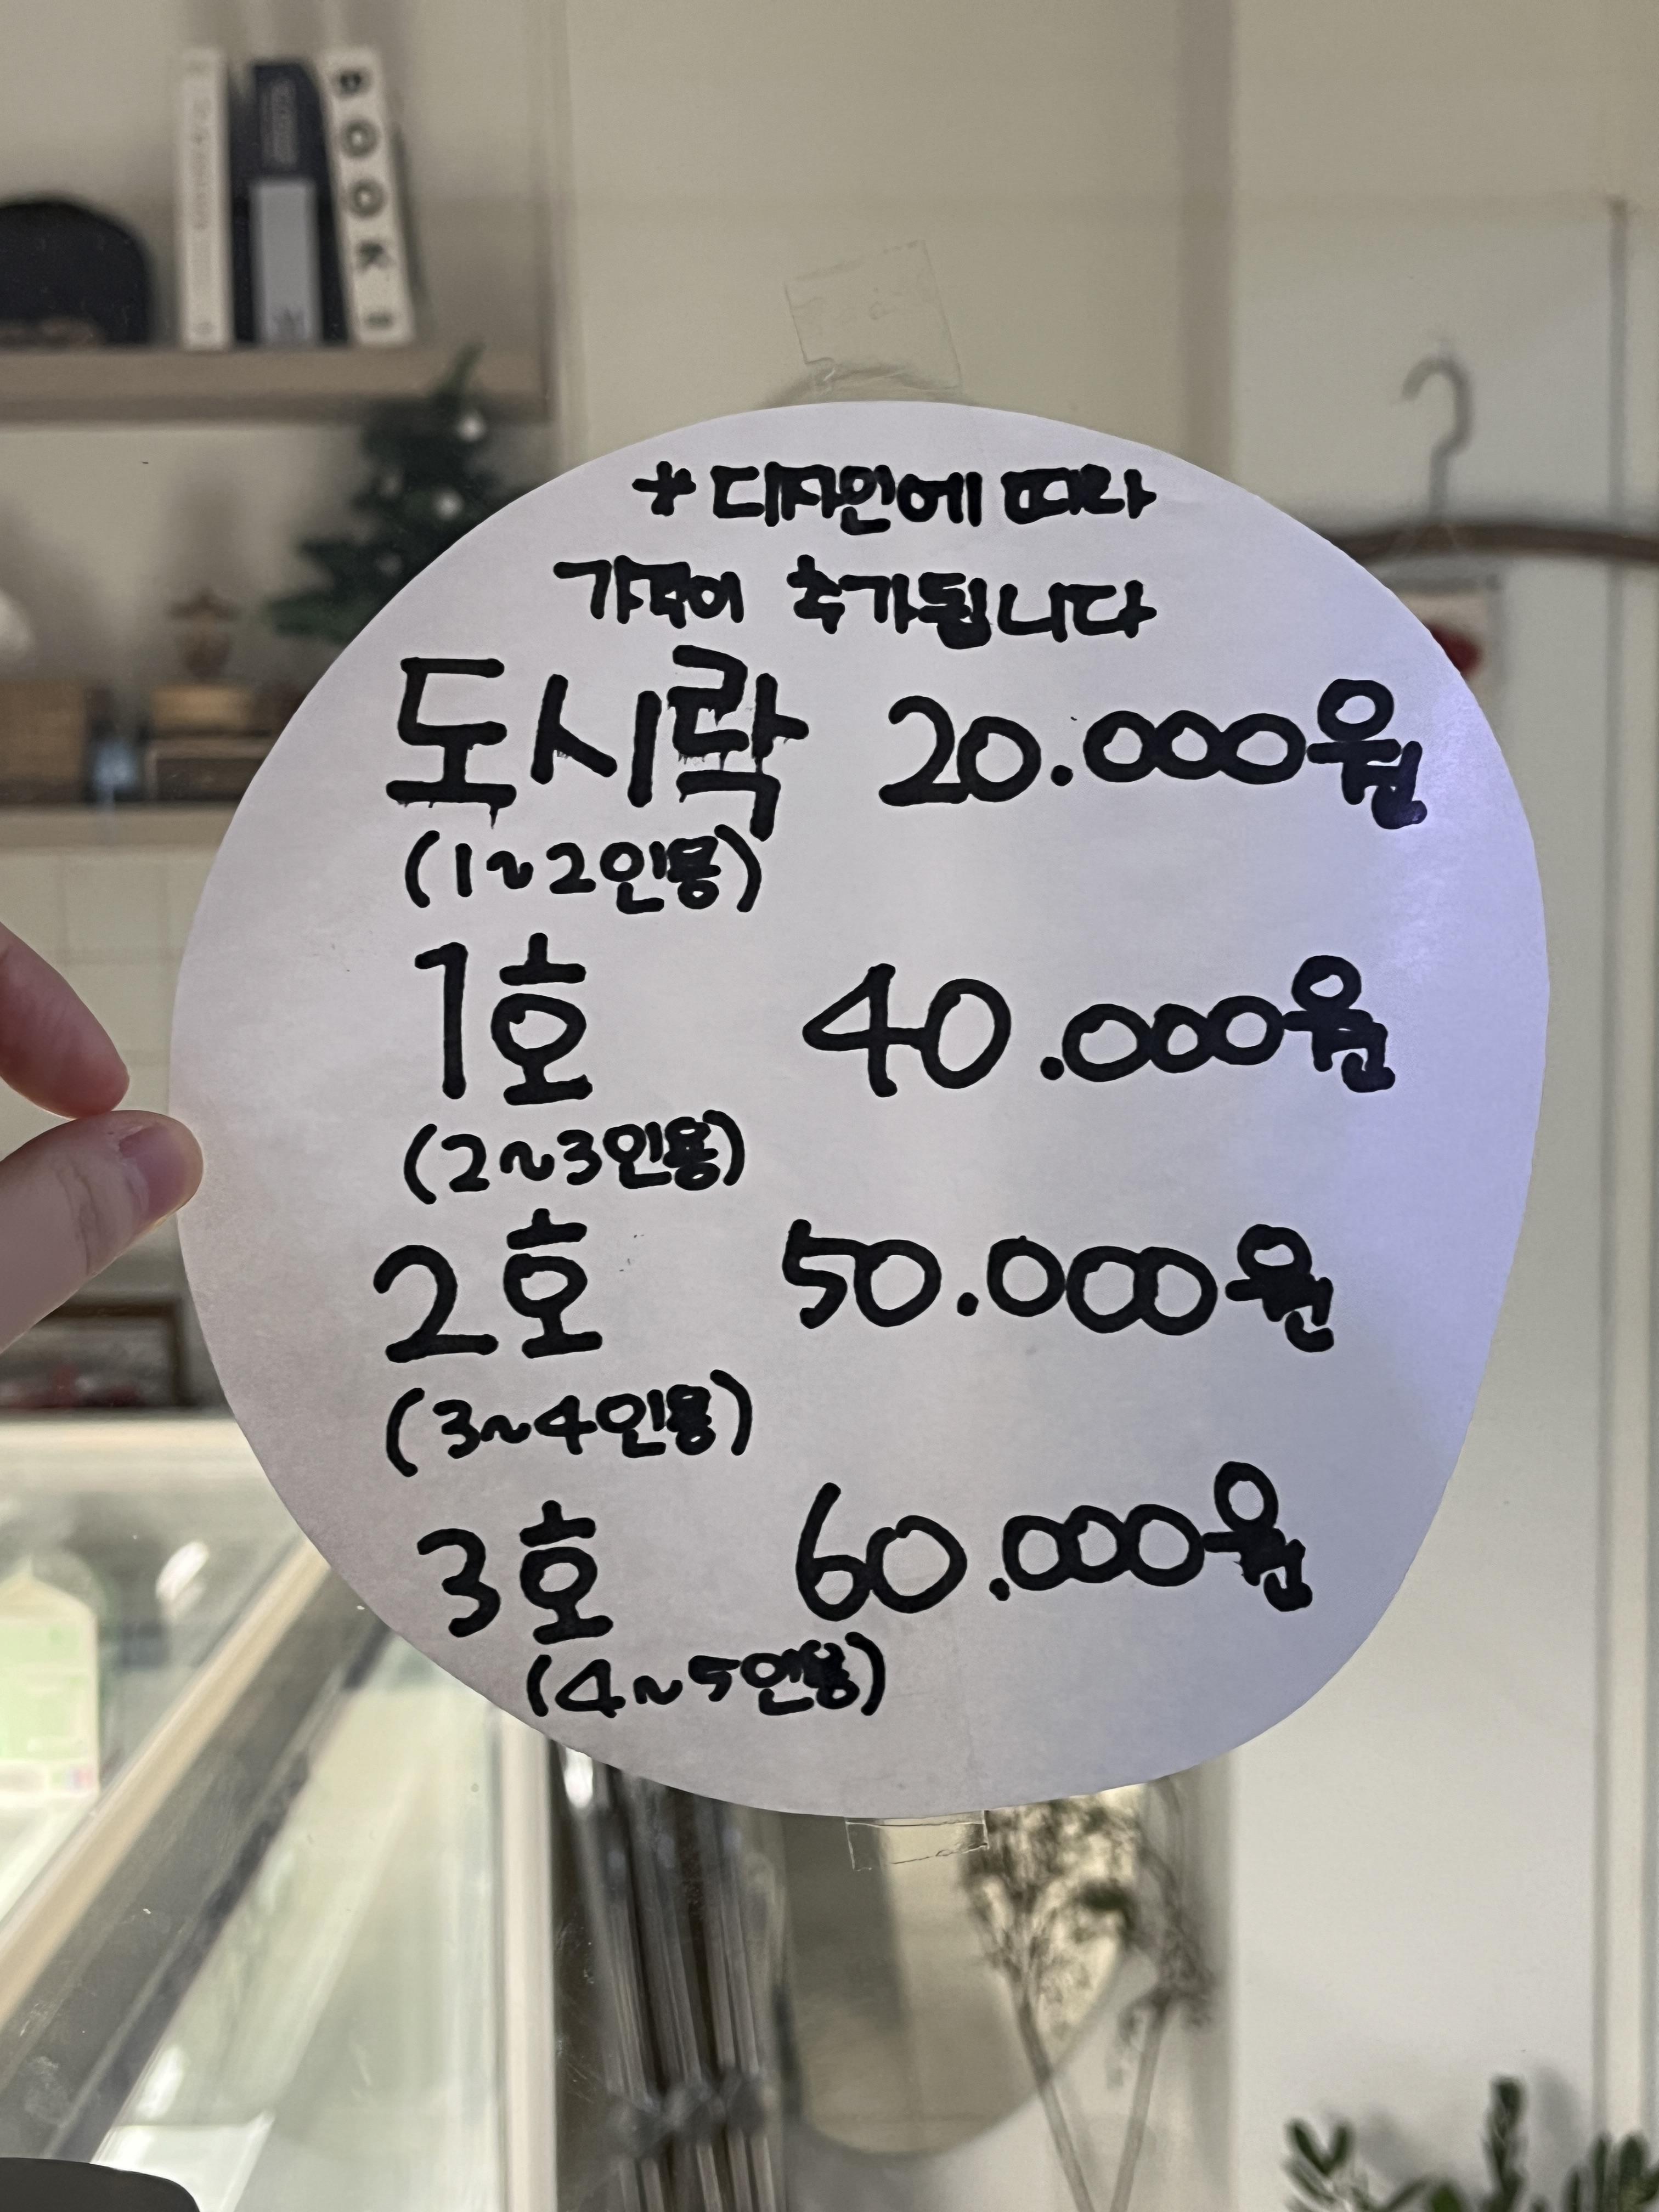 BOOK
*디자인에 따라
가격이 추가됩니다
도시락 20.000원
(1~2인용)
1호 40.000원
(2~3인용)
2호 50.000원
(3~4인용)
3호 60.000원
(4~5인용)